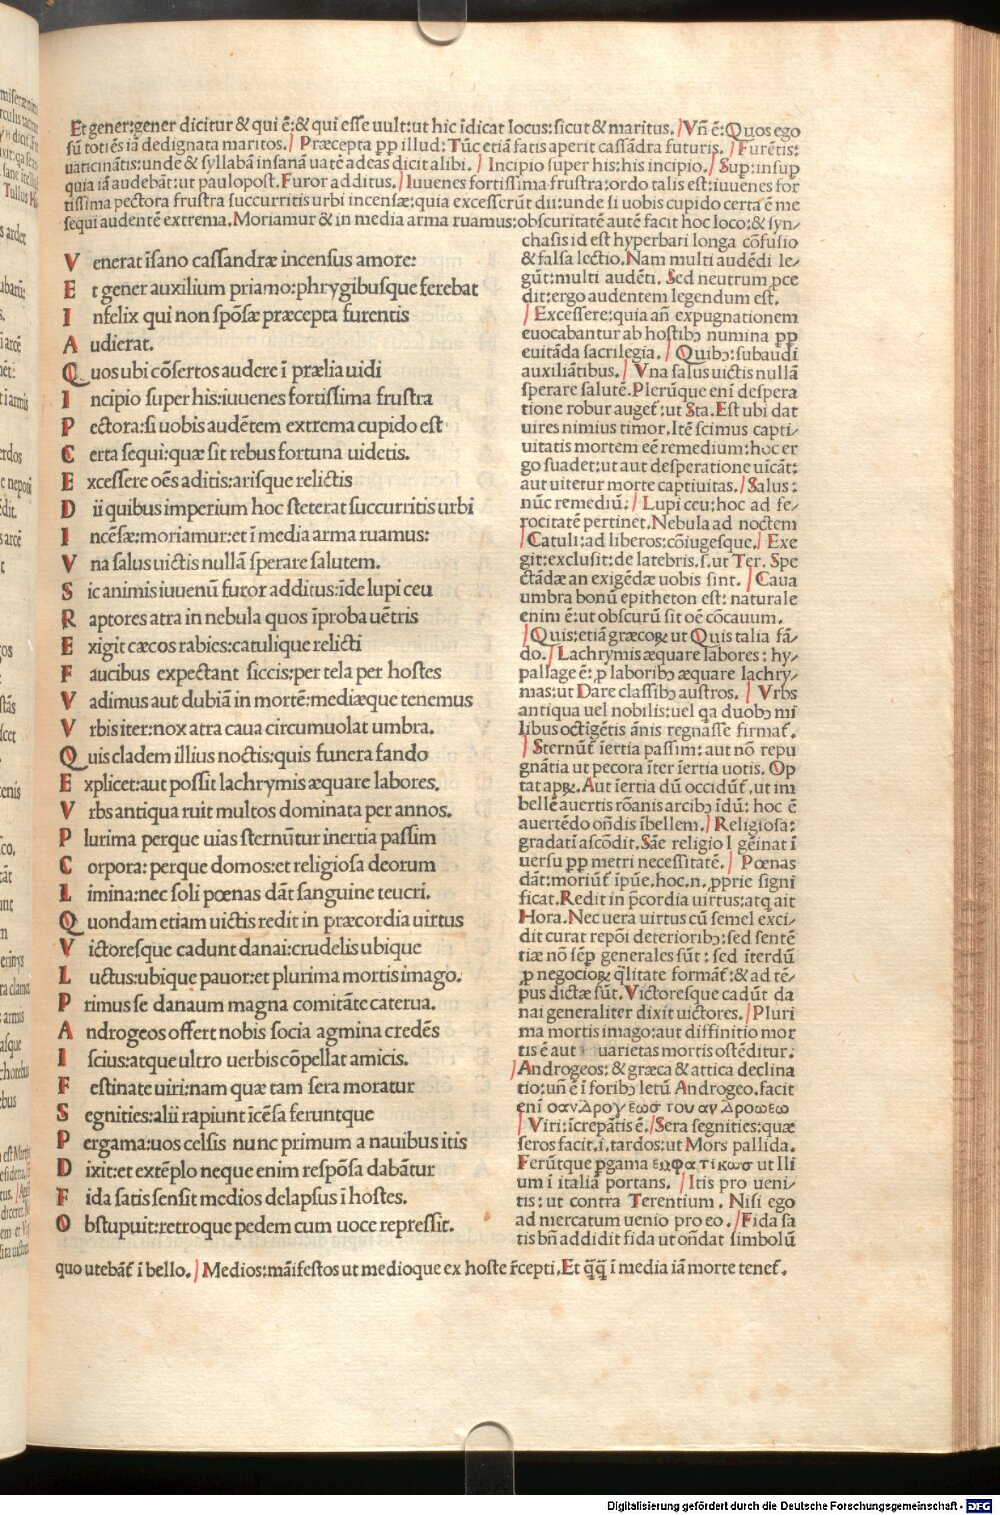 Et gener:gener dicitur & qui ē:& qui esse uult:ut hic īdicat locus:sicut & maritus. /Vñ ē:Quos ego
sū totiēs iā dedignata maritos. / Præcepta pp illud: Tūc etiā fatis aperit cassādra futuris. / Furētis:
uaticināntis:unde & syllabā insanā uatē adeas dicit alibi. / Incipio super his:his incipio. /Sup:insup
quia iā audebāt:ut paulopost.Furor additus./Iuuenes fortissima frustra:ordo talis est:iuuenes for
tissima pectora frustra succurritis urbi incensæ:quia excesserūt dii:unde si uobis cupido certa ē me
sequi audentē extrema.Moriamur & in media arma ruamus:obscuritatē autē facit hoc loco:& syn/
V enerat īsano cassandræ incensus amore:
E t gener auxilium priamo:phrygibusque ferebat
I nfelix qui non spōsæ præcepta furentis
A udierat.
Q uos ubi cōfertos audere ī prælia uidi
I ncipio super his:iuuenes fortissima frustra
P ectora:si uobis audētem extrema cupido est
C erta sequi:quæ sit rebus fortuna uidetis.
E xcessere oēs aditis:arisque relictis
D ii quibus imperium hoc steterat succurritis urbi
I ncēsæ:moriamur:et ī media arma ruamus:
V na salus uictis nullā sperare salutem.
S ic animis iuuenū furor additus:īde lupi ceu
R aptores atra in nebula quos īproba uētris
E xigit cæcos rabies:catulique relicti
F aucibus expectant siccis:per tela per hostes
V adimus aut dubiā in mortē:mediæque tenemus
V rbis iter:nox atra caua circumuolat umbra.
Q uis cladem illius noctis:quis funera fando
E xplicet:aut possit lachrymis æquare labores.
V rbs antiqua ruit multos dominata per annos.
P lurima perque uias sternūtur inertia passim
C orpora: perque domos:et religiosa deorum
L imina:nec soli pœnas dāt sanguine teucri.
Q uondam etiam uictis redit in præcordia uirtus
V ictoresque cadunt danai:crudelis ubique
L uctus:ubique pauor:et plurima mortis imago.
P rimus se danaum magna comitāte caterua.
A ndrogeos offert nobis socia agmina credēs
I scius:atque ultro uerbis cōpellat amicis.
F estinate uiri:nam quæ tam sera moratur
S egnities:alii rapiunt īcēsa feruntque
P ergama:uos celsis nunc primum a nauibus itis
D ixit:et extēplo neque enim respōsa dabātur
F ida satis sensit medios delapsus ī hostes.
O bstupuit:retroque pedem cum uoce repressit.
chasis id est hyperbati longa cōfusio
& falsa lectio.Nam multi audēdi le/
gūt:multi audēti. Sed neutrum pce
dit:ergo audentem legendum est.
/ Excessere:quia añ expugnationem
euocabantur ab hostibꝫ numina pp
euitāda sacrilegia. / Quibꝫ:subaudi
auxiliātibus./ Vna salus uictis nullā
sperare salutē.Plerūque enī despera
tione robur auget̄:ut Sta.Est ubi dat
uires nimius timor.Itē scimus capti/
uitatis mortem eē remedium:hoc er
go suadet:ut aut desperatione uīcāt:
aut uitetur morte captiuitas./Salus:
nūc remediū:/ Lupi ceu:hoc ad fe/
rocitatē pertinet.Nebula ad noctem
/Catuli:ad liberos:cōiugesque./ Exe
git:exclusit:de latebris.s.ut Ter. Spe
ctādæ an exigēdæ uobis sint. / Caua
umbra bonū epitheton est: naturale
enim ē:ut obscurū sit oē cōcauum.
/Quis:etiā græcoꝝ ut Quis talia fā/
do./ Lachrymis æquare labores: hy/
pallage ē: ꝓ laboribꝫ æquare lachry/
mas:ut Dare classibꝫ austros. / Vrbs
antiqua uel nobilis:uel qa duobꝫ mi
libus octīgētis ānis regnasse firmat̄.
/ Sternūt̄ īertia passim: aut nō repu
gnātia ut pecora īter īertia uotis. Op
tat apꝝ. Aut īertia dū occidūt̄. ut im
bellē auertis rōanis arcibꝫ īdū: hoc ē
auertēdo oñdis ībellem./Religiosa:
gradati ascōdit. Sāe religio l gēinat ī
uersu pp metri necessitatē./ Pœnas
dāt:moriūt̄ īpūe.hoc.n.ꝓprie signi
ficat.Redit in p̄cordia uirtus:atq ait
Hora.Nec uera uirtus cū semel exci/
dit curat repōi deterioribꝫ:sed sentē
tiæ nō sēp generales sūt: sed īterdū
ꝓ negocioꝝ q̄litate format̄:& ad tē/
pus dictæ sūt.Victoresque cadūt da
nai generaliter dixit uictores./Pluri
ma mortis imago:aut diffinitio mor
tis ē aut uarietas mortis ostēditur.
/Androgeos:& græca & attica declina
tio:uñ ē ī foribꝫ letū Androgeo.facit
enī οανΔρογεωσ του ανΔροωεω
/ Viri:īcrepātis ē./Sera segnities:quæ
seros facit.i.tardos:ut Mors pallida.
Ferūtque pgama εωφατικωσ ut Ili
um ī italiā portans. /Itis pro ueni/
tis:ut contra Terentium. Nisi ego
ad mercatum uenio pro eo. /Fida sa
tis bñ addidit fida ut oñdat simbolū
quo utebāt̄ ī bello./Medios:māifestos ut medioque ex hoste r̄cepti.Et q̄q̄ ī media iā morte tenet̄.
Digitalisierung gefördert durch die Deutsche Forschungsgemeinschaft - DFG